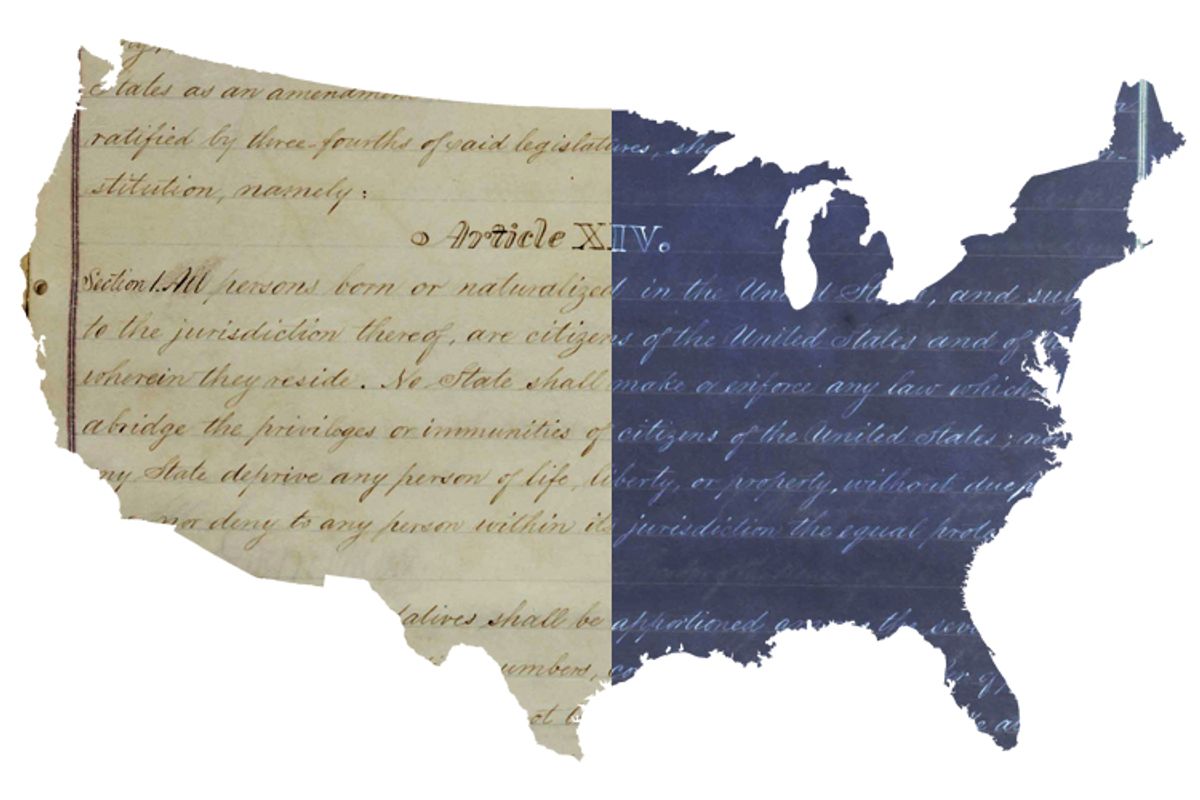 States as an amendment
ratified by three-fourths of said legislatures, sha
stitution, namely:
Article XIV.
Section 1. All persons born or naturalized in the United States, and subj
to the jurisdiction thereof, are citizens of the United States and of the
wherein they reside. No State shall make or enforce any law which
abridge the privileges or immunities of citizens of the United States; nor
ny State deprive any person of life, liberty, or property, without due p
nor deny to any person within its jurisdiction the equal prote
tatives shall be apportioned among the seve
umbers, co
ot